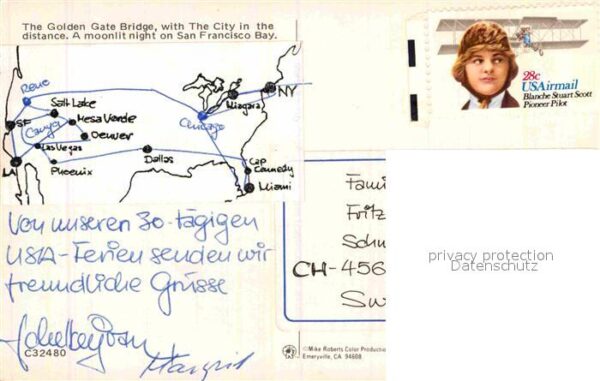 The Golden Gate Bridge, with The City in the
distance. A moonlit night on San Francisco Bay.
28c
USAirmail
Blanche Stuart Scott
Pioneer Pilot
Reno
Salt Lake
SF
Mesa Verde
Canyon
Denver
Las Vegas
LA
Phoenix
Dallas
Chicago
Niagara
NY
Cap
Miami
Von unseren 30-tägigen
USA-Ferien senden wir
freundliche Grüsse
Margrit
C32480
Fami
Fritz
Schn
CH-456
Sw
privacy protection
Datenschutz
©Mike Roberts Color Productio
Emeryville, CA 94608